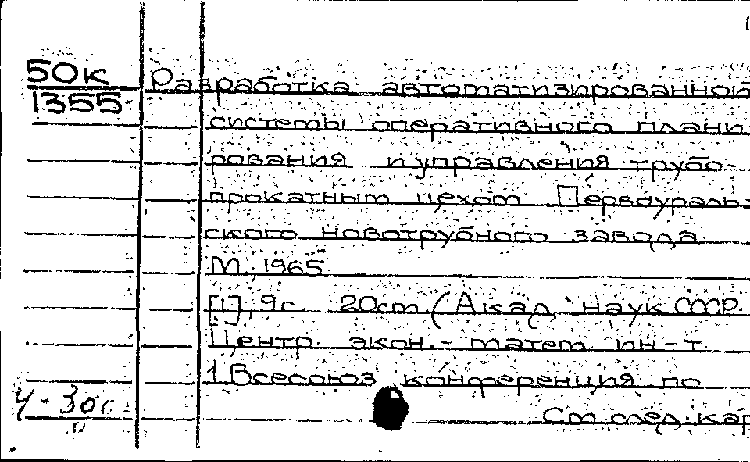 50к
1355
Разработка автоматизированной
системы оперативного плани
рования и управления трубо-
прокатным цехом Первоураль-
ского новотрубного завода.
М., 1965
[1], 9с. 20cm (Акад. наук СССР.
Центр. экон.-матем. ин-т.
1 Всесоюз конференция по
См след. кар